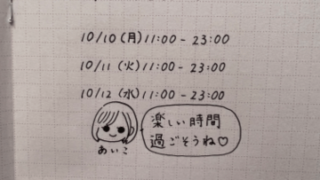 10/10(月)11:00-23:00
10/11(火)11:00-23:00
10/12(水)11:00-23:00
あいこ
楽しい時間
過ごそうね♡